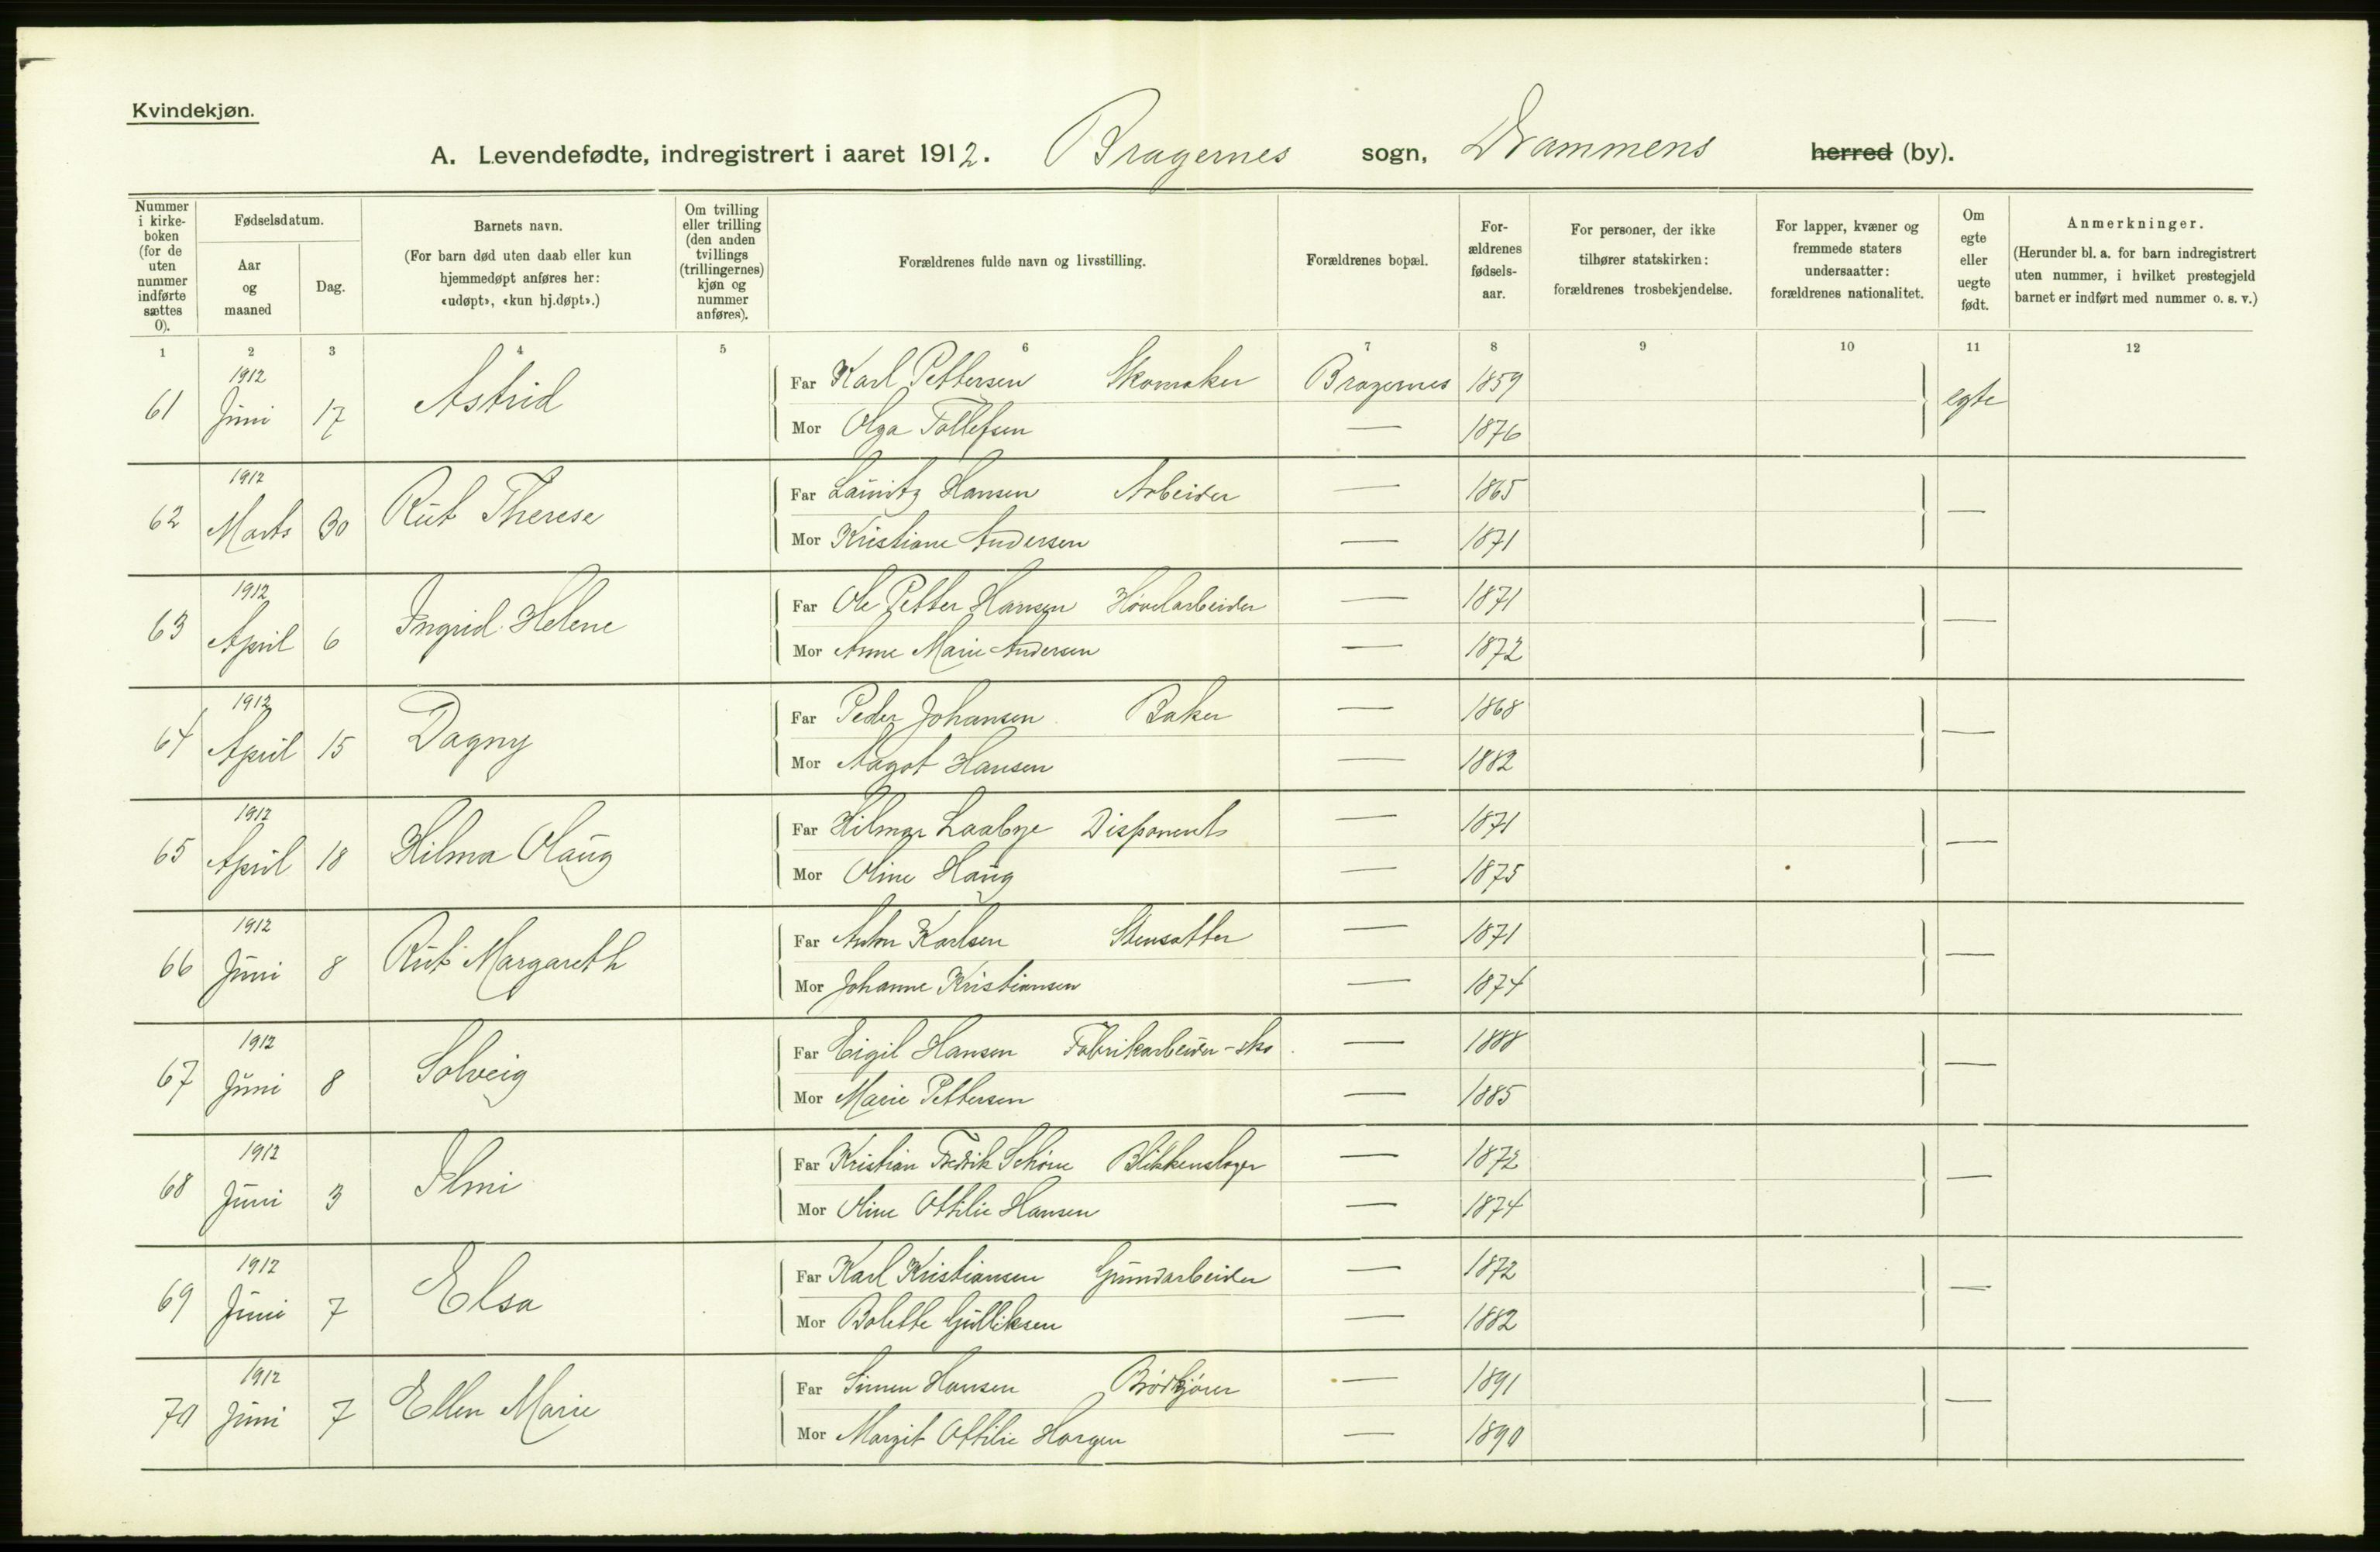 Kvindekjøn.
A. Levendefødte, indregistrert i aaret 1912. Bragernes sogn, Drammens herred (by).
Nummer i kirke-boken (for de uten nummer indførte sættes 0).
Fødselsdatum.
Aar og maaned
Dag.
Barnets navn.
(For barn død uten daab eller kun hjemmedøpt anføres her: «udøpt», «kun hj.døpt».)
Om tvilling eller trilling (den anden tvillings (trillingernes) kjøn og nummer anføres).
Forældrenes fulde navn og livsstilling.
Forældrenes bopæl.
For-ældrenes fødsels-aar.
For personer, der ikke tilhører statskirken: forældrenes trosbekjendelse.
For lapper, kvæner og fremmede staters undersaatter: forældrenes nationalitet.
Om egte eller uegte født.
Anmerkninger.
(Herunder bl. a. for barn indregistrert uten nummer, i hvilket prestegjeld barnet er indført med nummer o. s. v.)
1 2 3 4 5 6 7 8 9 10 11 12
61 1912 Juni 17 Astrid Far Karl Pettersen Skomaker Bragernes 1859 egte
Mor Olga Tollefsen — 1876
62 1912 Marts 30 Rut Therese Far Lauritz Hansen Arbeider — 1865 —
Mor Kristiane Andersen — 1871
63 1912 April 6 Ingrid Helene Far Ole Petter Hansen Høvelarbeider — 1871 —
Mor Anne Marie Andersen — 1872
64 1912 April 15 Dagny Far Peder Johansen Baker — 1868 —
Mor Aagot Hansen — 1882
65 1912 April 18 Hilma Olaug Far Hilmar Laabye Disponent — 1871 —
Mor Oline Haug — 1875
66 1912 Juni 8 Rut Margareth Far Anton Karlsen Stensætter — 1871 —
Mor Johanne Kristiansen — 1874
67 1912 Juni 8 Solveig Far Eigil Hansen Fabrikarbeider - sko — 1888 —
Mor Marie Pettersen — 1885
68 1912 Juni 3 Ilmi Far Kristian Fredrik Schöne Blikkenslager — 1872 —
Mor Oline Ottilie Hansen — 1874
69 1912 Juni 7 Elsa Far Karl Kristiansen Grundarbeider — 1872 —
Mor Bolette Gulliksen — 1882
70 1912 Juni 7 Ellen Marie Far Simen Hansen Brødkjører — 1891 —
Mor Margit Ottilie Horgen — 1890